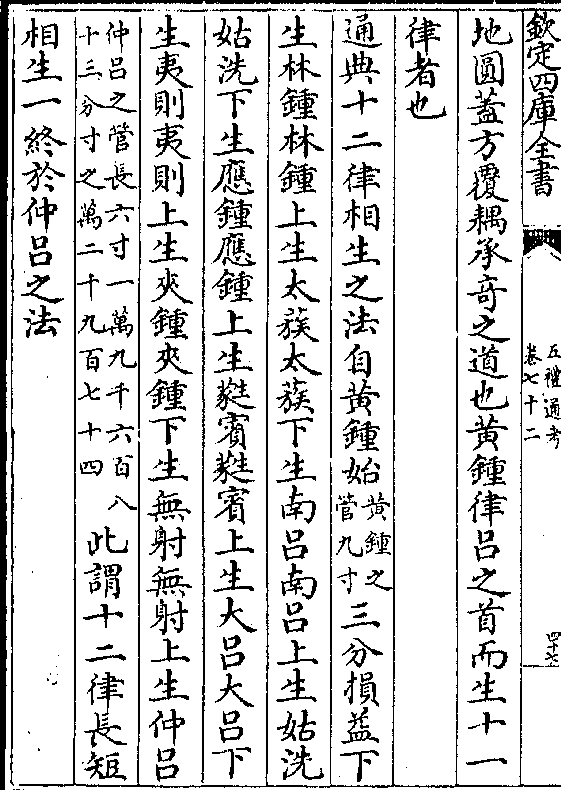 欽定四庫全書
五禮通考
卷七十二
地圓蓋方覆耦承奇之道也黄鍾律吕之首而生十一
律者也
通典十二律相生之法自黄鍾始黄鍾之管九寸三分損益下
生林鍾林鍾上生太蔟太蔟下生南吕南吕上生姑洗
姑洗下生應鍾應鍾上生蕤賓蕤賓上生大吕大吕下
生夷則夷則上生夾鍾夾鍾下生無射無射上生仲吕
仲吕之管長六寸一萬九千六百八十三分寸之萬二千九百七十四此謂十二律長短
相生一終於仲吕之法